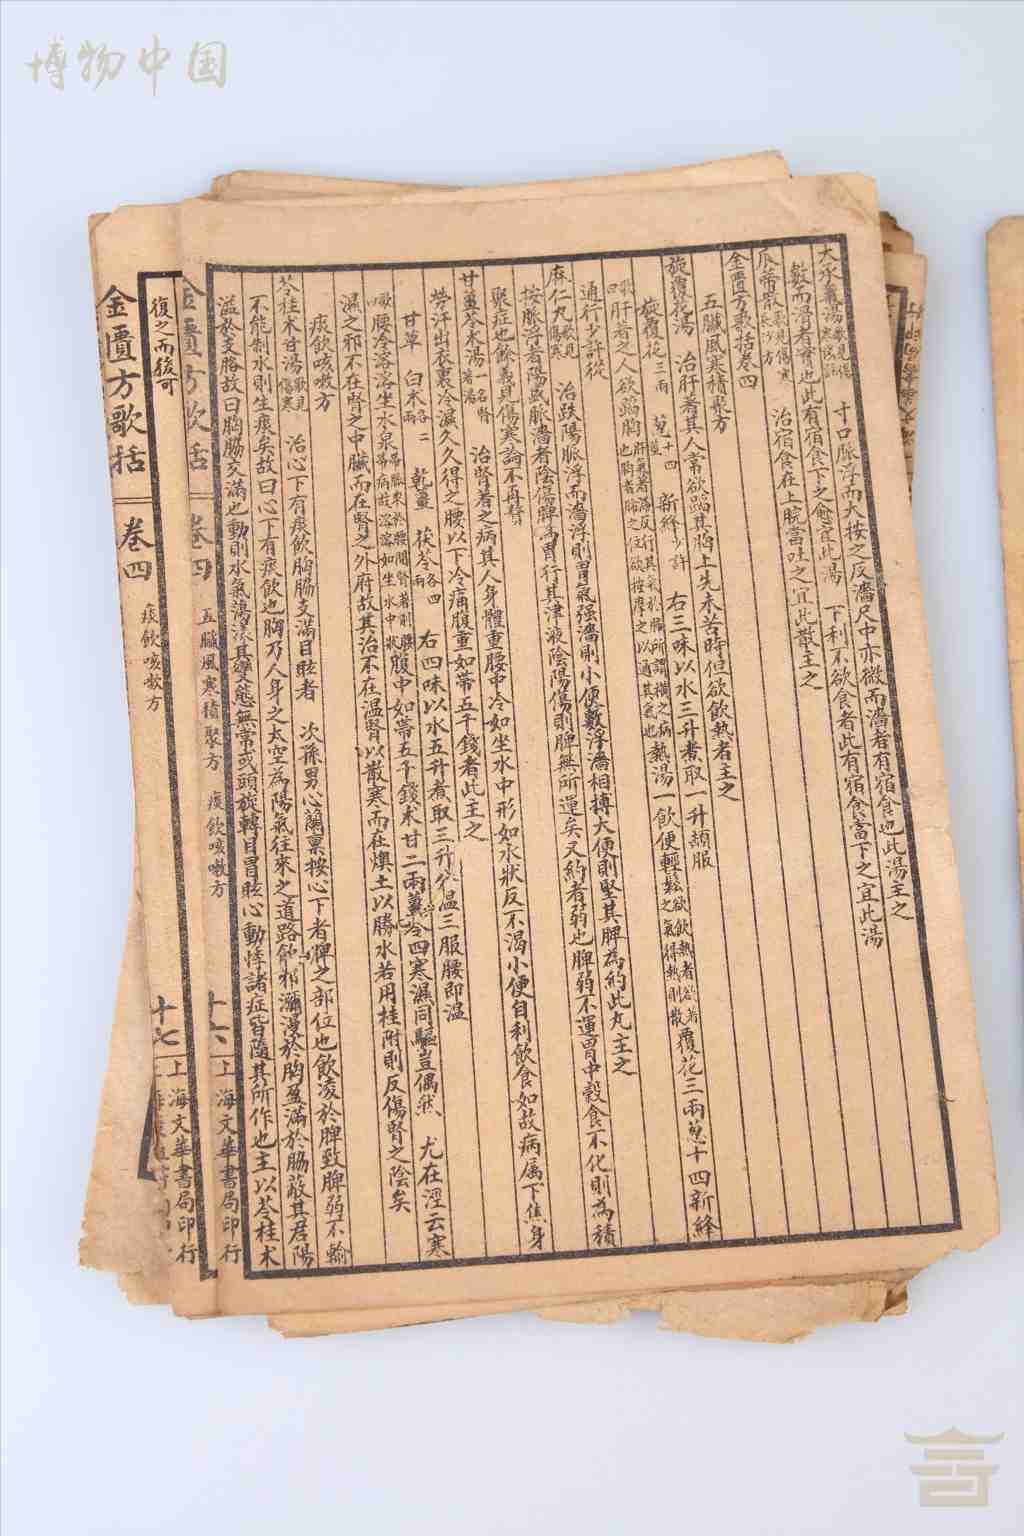 博物中国
大承氣湯歌見傷寒長沙 寸口脈浮而大按之反濇尺中亦微而濇者有宿食也此湯主之
數而滑者實也此有宿食下之愈宜此湯 下利不欲食者此有宿食當下之宜此湯
瓜蒂散歌見傷寒長沙方 治宿食在上脘當吐之宜此散主之
金匱方歌括卷四
五臟風寒積聚方
旋覆花湯 治肝著其人常欲蹈其胸上先未苦時但欲飲熱者主之
旋覆花三兩 葱十四莖 新絳少許 右三味以水三升煮取一升頓服
歌曰肝著之人欲蹈胸肝氣著滯反行其氣於肺所謂橫之病也胸者肺之位欲按摩之以通其氣也熱湯一飲便輕鬆欲飲熱者欲著之氣得熱則散覆花三兩葱十四新絳
通行少許從
麻仁丸歌見傷寒 治趺陽脈浮而濇浮則胃氣强濇則小便數浮濇相搏大便則堅其脾為約此丸主之
按脈浮者陽盛脈濇者陰傷脾為胃行其津液陰陽傷則脾無所運矣又約者弱也脾弱不運胃中穀食不化則為積
聚症也餘義見傷寒論不再釋
甘薑苓朮湯一名腎著湯 治腎著之病其人身體重腰中冷如坐水中形如水狀反不渴小便自利飲食如故病屬下焦身
勞汗出衣裏冷濕久久得之腰以下冷痛腹重如帶五千錢者此主之
甘草 白朮各二兩 乾薑 茯苓各四兩 右四味以水五升煮取三升分溫三服腰即溫
歌曰腰冷溶溶坐水泉帶脈束於腰間腎著則腰帶病故溶溶如坐水中狀腹中如帶五千錢朮甘二兩薑苓四寒濕同驅豈偶然 尤在涇云寒
濕之邪不在腎之中臟而在腎之外府故其治不在溫腎以散寒而在燠土以勝水若用桂附則反傷腎之陰矣
痰飲咳嗽方
苓桂朮甘湯歌見傷寒 治心下有痰飲胸脇支滿目眩者 次孫男心蘭稟按心下者脾之部位也飲淩於脾致脾弱不輸
不能制水則生痰矣故曰心下有痰飲也胸乃人身之太空為陽氣往來之道路飲邪瀰漫於胸盈滿於脇蔽其君陽
溢於支絡故曰胸脇支滿也動則水氣蕩漾其變態無常或頭旋轉目冒眩心動悸諸症皆隨其所作也主以苓桂朮
五臟風寒積聚方 痰飲咳嗽方
十六 上海文華書局印行
復之而後可
金匱方歌括 卷四 痰飲咳嗽方
十七 上海文華書局印行